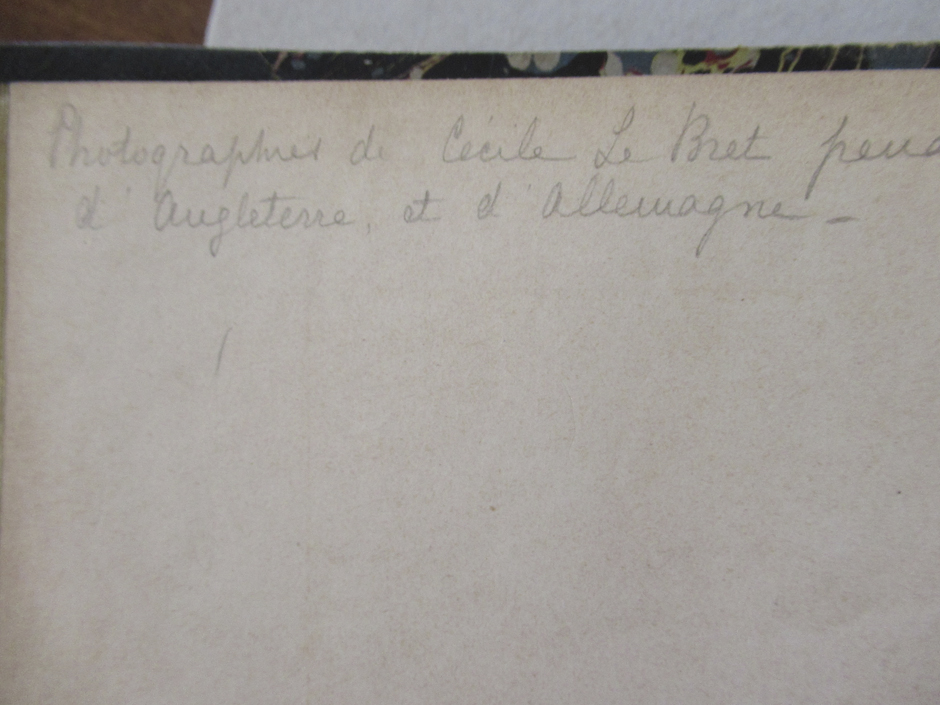 Photographies de Cécile Le Bret
d'Angleterre, et d'Allemagne -